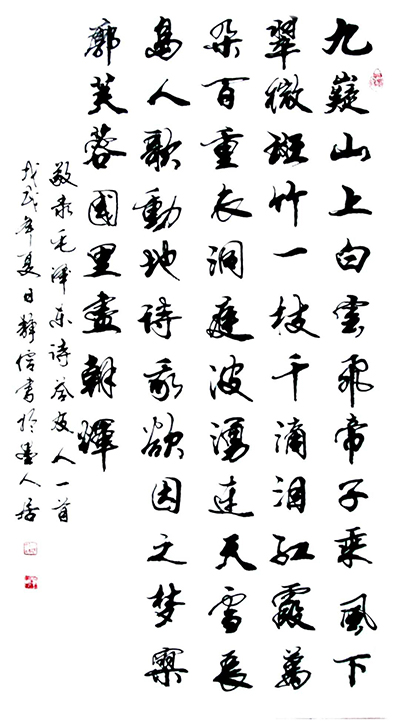 九嶷山上白雲飛帝子乘風下
翠微斑竹一枝千滴泪紅霞萬
朵百重衣洞庭波湧連天雪長
島人歌動地詩我欲因之夢寥
廓芙蓉國里盡朝輝
敬录毛澤东詩答友人一首
戊戌年夏日書於墨人居